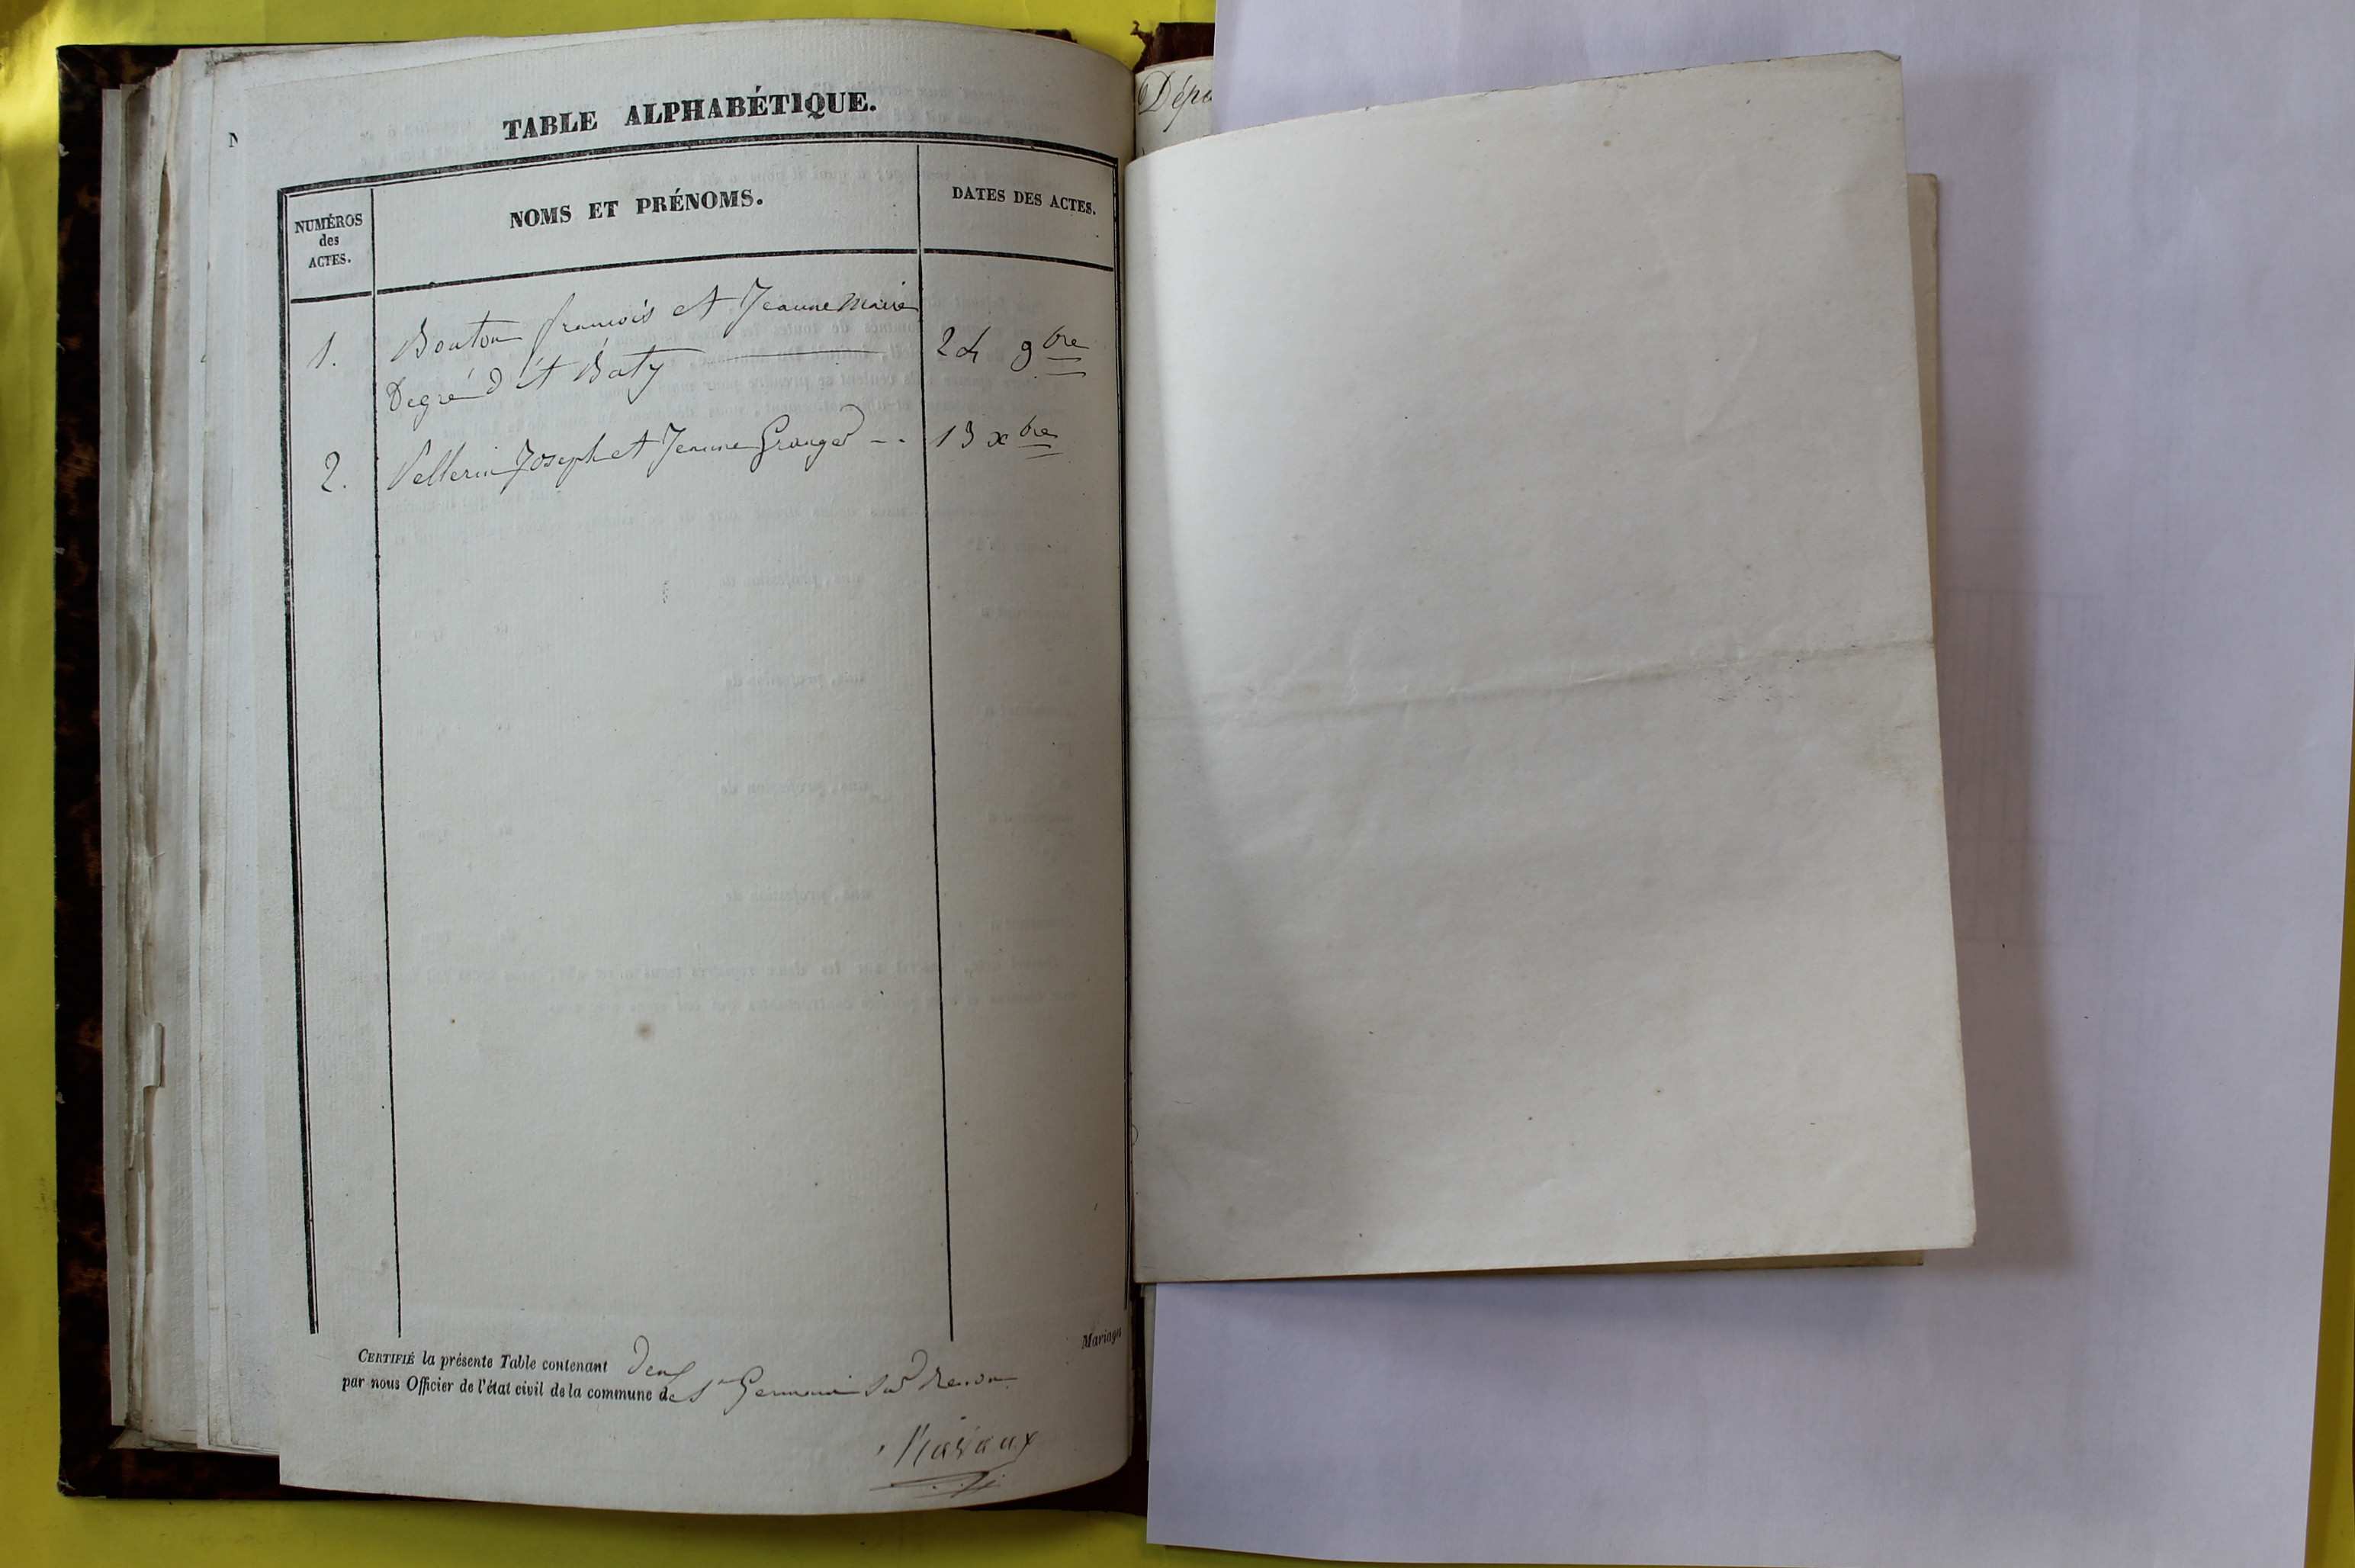 TABLE ALPHABÉTIQUE.
NUMÉROS
des
ACTES.
NOMS ET PRÉNOMS.
DATES DES ACTES.
1. Bouton françois et Jeanne Marie
Degré dit Baty 24 9bre
2. Pellerin Joseph et Jeanne Granger -- 13 xbre
Mariages
CERTIFIÉ la présente Table contenant Deux
par nous Officier de l'état civil de la commune de St Germain sur Renon
Dépa